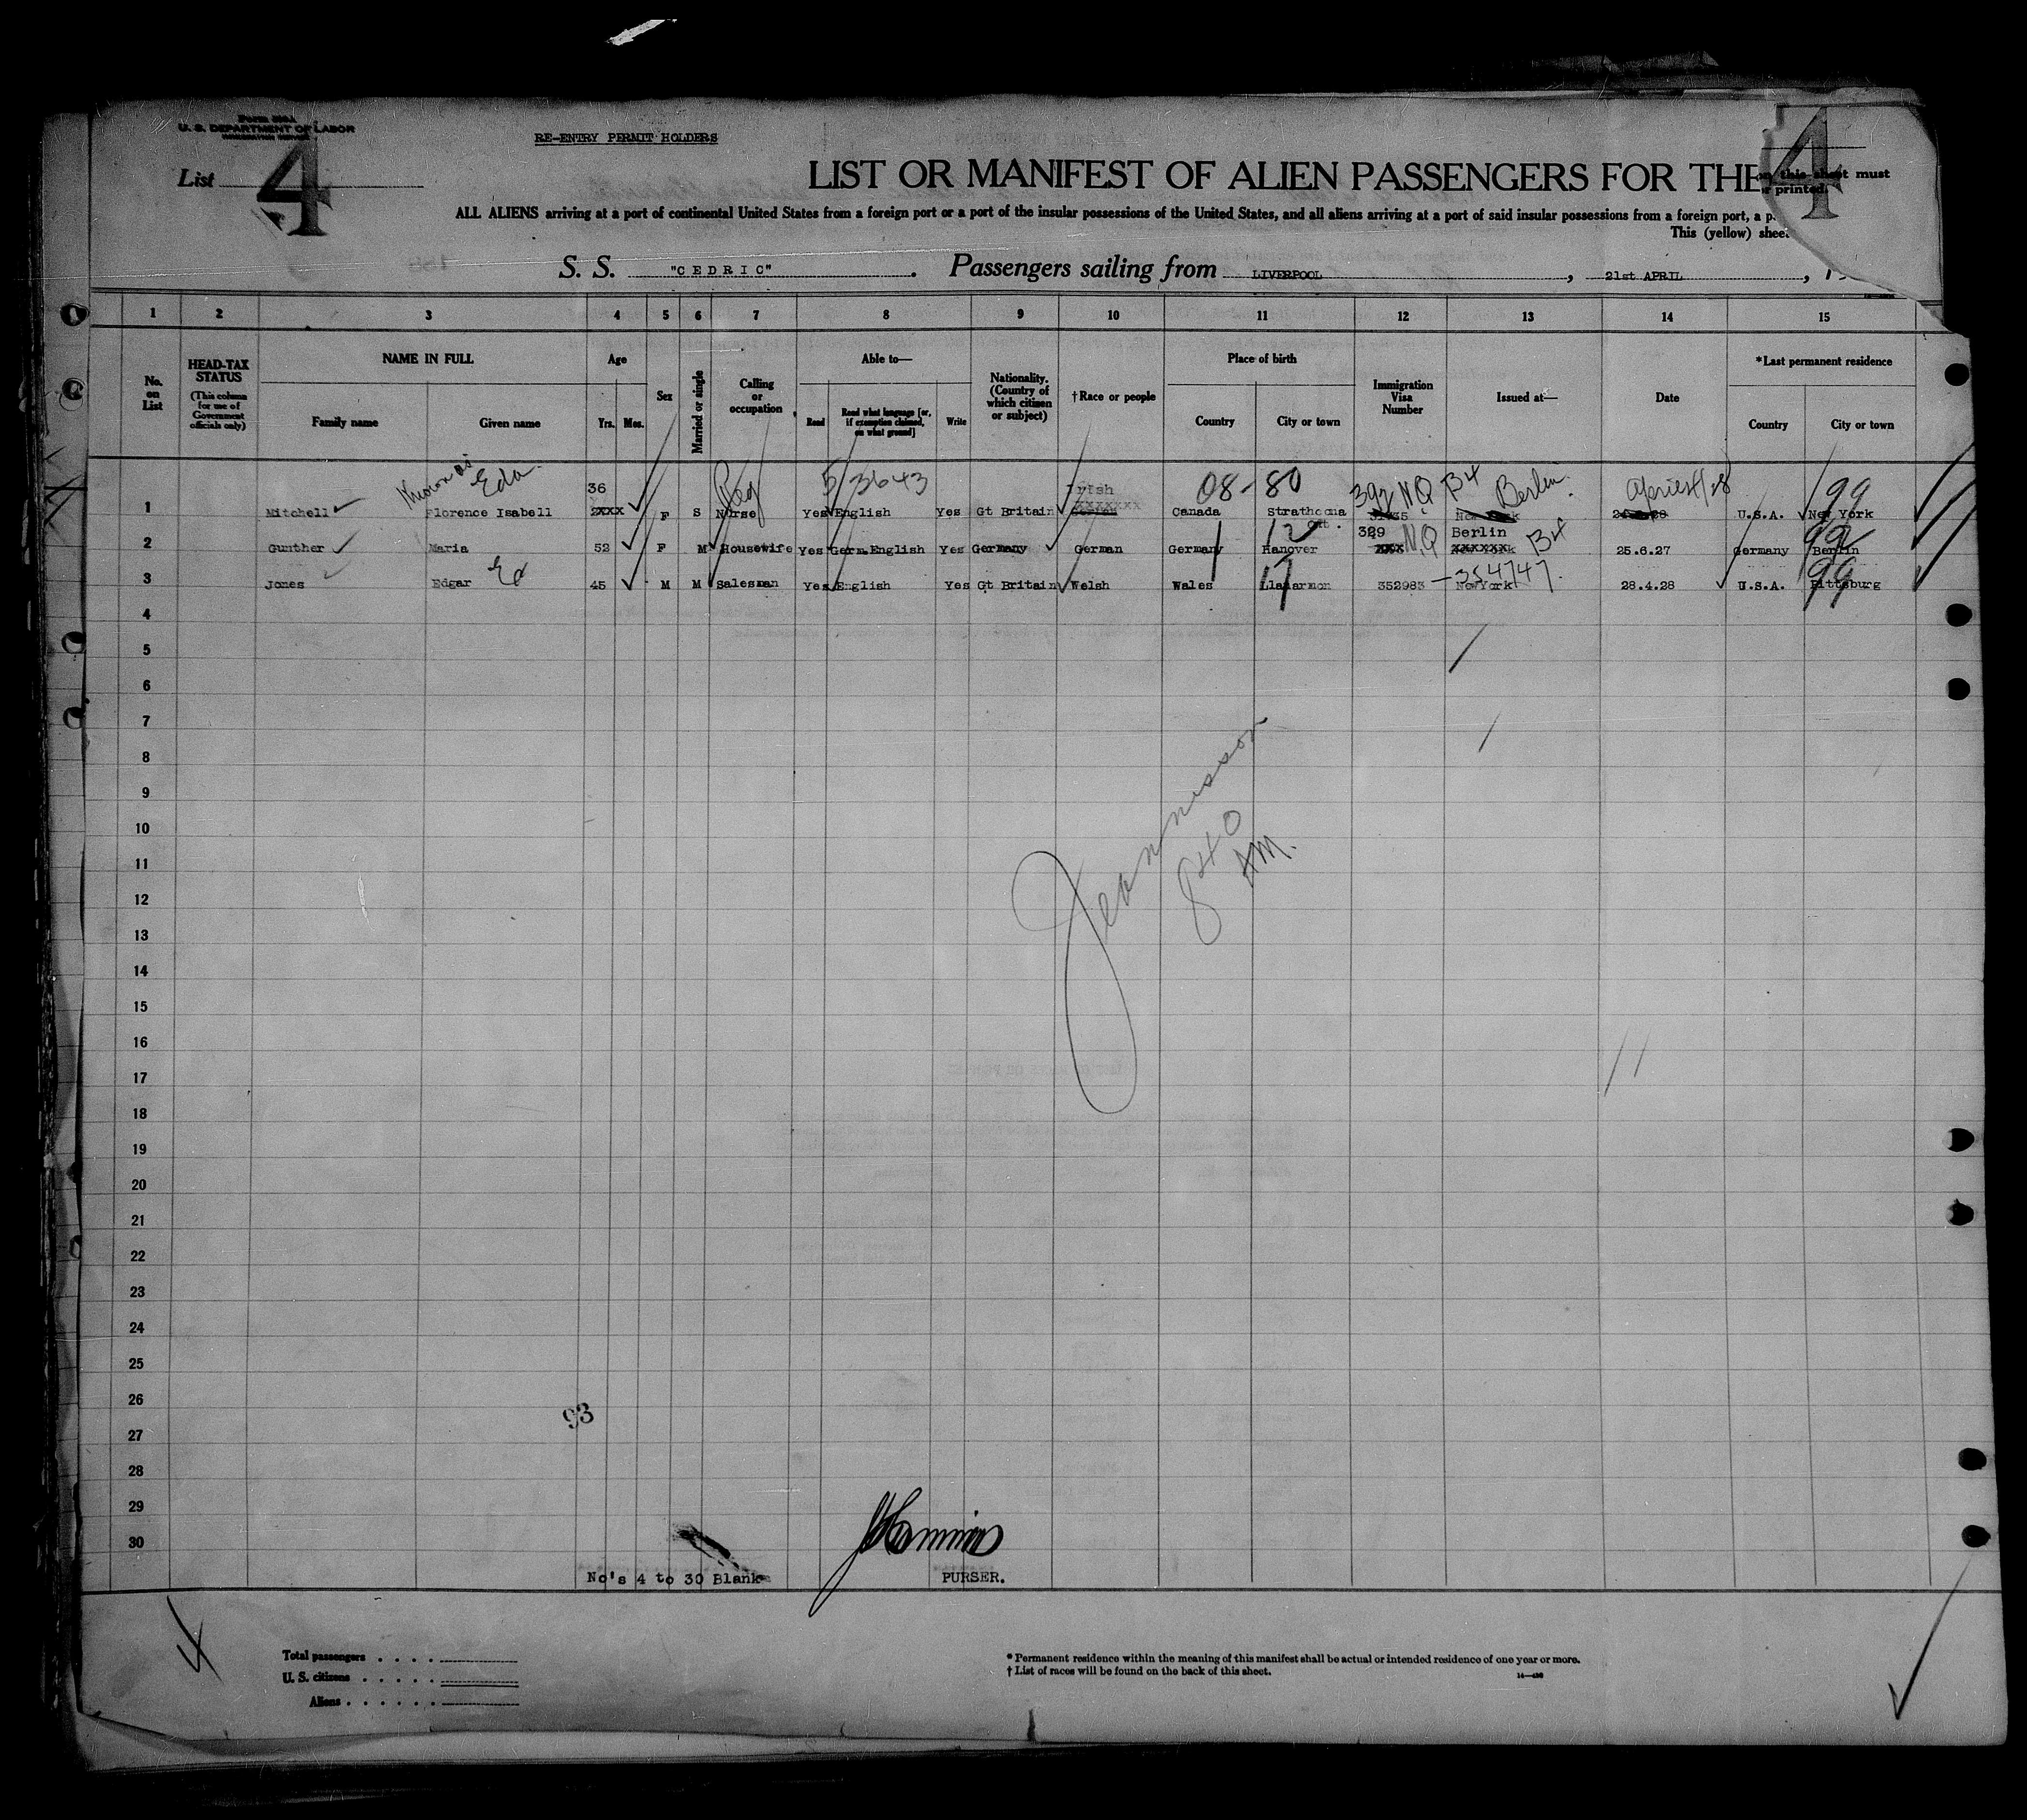 Form 500-A
U. S. DEPARTMENT OF LABOR
RE-ENTRY PERMIT HOLDERS
List 4
4
LIST OR MANIFEST OF ALIEN PASSENGERS FOR THE
this sheet must
printed.
ALL ALIENS arriving at a port of continental United States from a foreign port or a port of the insular possessions of the United States, and all aliens arriving at a port of said insular possessions from a foreign port, a p
This (yellow) sheet
S. S. "CEDRIC". Passengers sailing from LIVERPOOL, 21st APRIL, 1
1 2 3 4 5 6 7 8 9 10 11 12 13 14 15
No. on List
HEAD-TAX STATUS (This column for use of Government officials only)
NAME IN FULL Family name Given name
Age Yrs. Mos.
Sex
Married or single
Calling or occupation
Able to— Read Read what language [or, if exemption claimed, on what ground] Write
Nationality. (Country of which citizen or subject)
†Race or people
Place of birth Country City or town
Immigration Visa Number
Issued at—
Date
*Last permanent residence Country City or town
Known as Eda 36 Reg 5/3643 Irish 08-80 392 NQ B4 Berlin. 99
1 Mitchell Florence Isabell F S Nurse Yes English Yes Gt Britain Canada Strathcona Ont. New York U.S.A. New York
12 329 Berlin 99
2 Gunther Maria 52 F M Housewife Yes Germ.English Yes Germany German Germany Hanover XXX NQ XXXXXX B4 25.6.27 Germany Berlin
17 -354747. 99
3 Jones Edgar Ed 45 M M Salesman Yes English Yes Gt Britain Welsh Wales Llanarmon 352983 NewYork 28.4.28 U.S.A. Pittsburg
4
5
6
7
8
9
10
11
12
13
14
15
16
17
18
19
20
21
22
23
24
25
26
27
28
29
30
840
AM.
93
No's 4 to 30 Blank
PURSER.
4
Total passengers
U. S. citizens
Aliens
* Permanent residence within the meaning of this manifest shall be actual or intended residence of one year or more.
† List of races will be found on the back of this sheet.